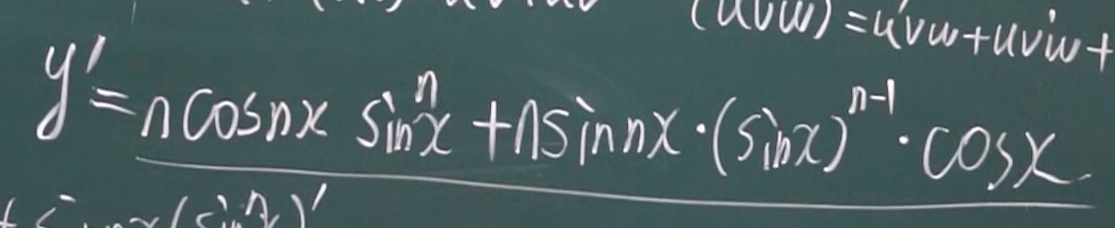 (uvw)=u'vw+uv'w+
y'=n cosnx sinⁿx+n sin nx·(sinx)ⁿ⁻¹·cosx